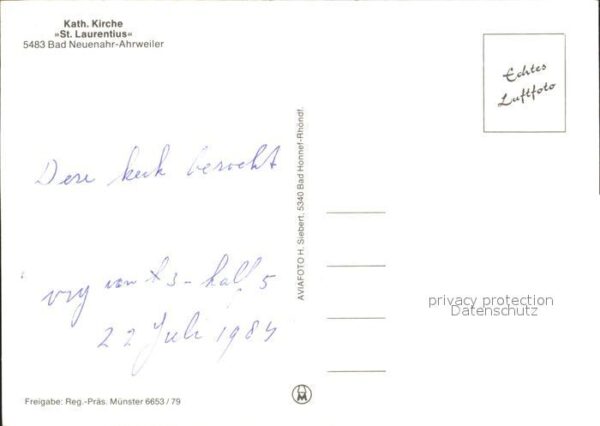 Kath. Kirche
»St. Laurentius«
5483 Bad Neuenahr-Ahrweiler
Echtes
Luftfoto
Dese kerk bezocht
van 3 - half 5
22 Juli 1984
AVIAFOTO H. Siebert, 5340 Bad Honnef-Rhöndf.
privacy protection
Datenschutz
Freigabe: Reg.-Präs. Münster 6653 / 79